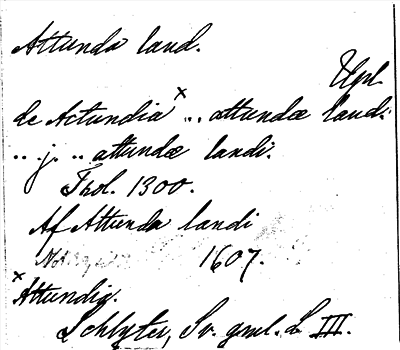 Attunda land.
Upl.
de Attundia ˣ .. attundæ landi
.. j. .. attundæ landi.
Thol. 1300.
Af Attunda landi
1607.
ˣ Attundia.
Schlyter, Sv. gml. L III.